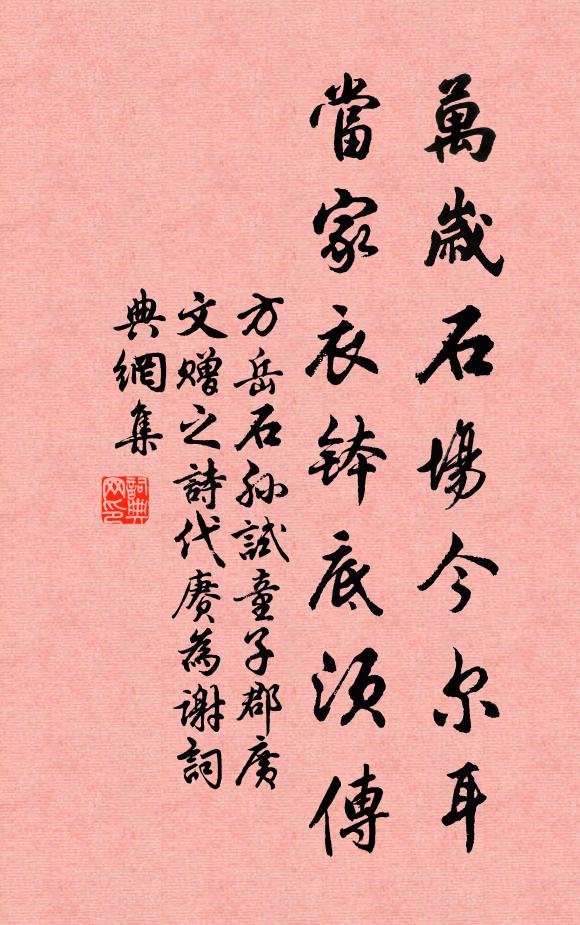 萬歲石場今尔耳
當家衣鉢底須傳
方岳石孙試童子郡廣
文贈之詩代賡為謝詞
典網集
詞典网印